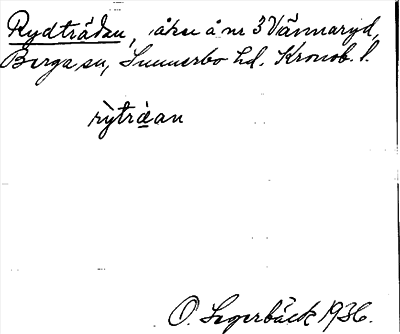 Rydträdan, åker å nr 3 Vännaryd,
Berga sn, Sunnerbo hd. Kronob. l.
rỳträ̀an
O. Segerbäck 1936.